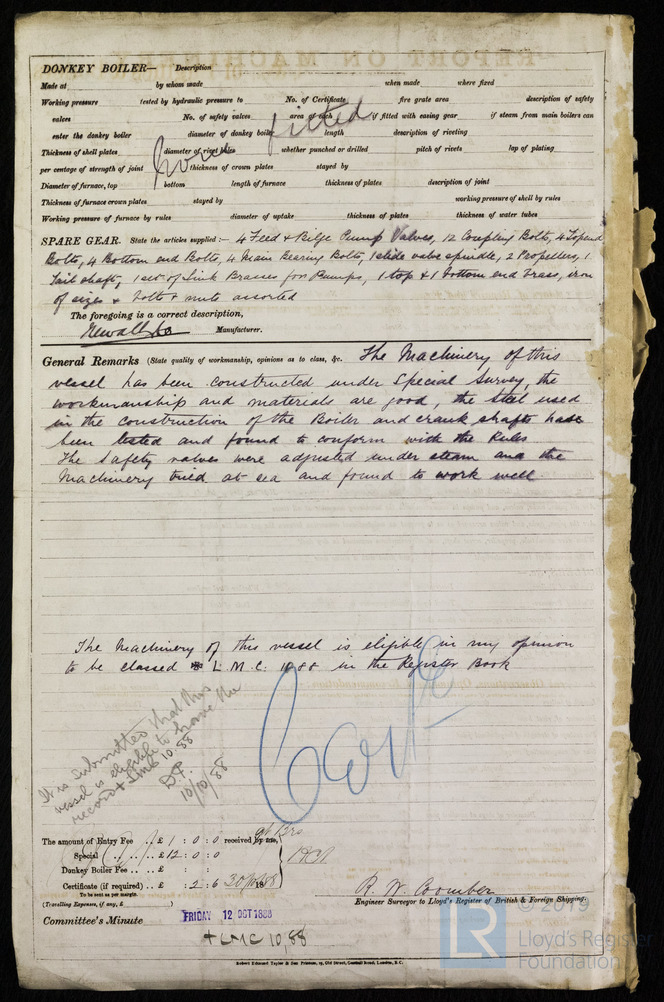 DONKEY BOILER— Description
Made at by whom made when made where fixed
Working pressure tested by hydraulic pressure to No. of Certificate fire grate area description of safety
valves No. of safety valves area of each if fitted with easing gear if steam from main boilers can
enter the donkey boiler diameter of donkey boiler length description of riveting
Thickness of shell plates diameter of rivet holes whether punched or drilled pitch of rivets lap of plating
None fitted
per centage of strength of joint thickness of crown plates stayed by
Diameter of furnace, top bottom length of furnace thickness of plates description of joint
Thickness of furnace crown plates stayed by working pressure of shell by rules
Working pressure of furnace by rules diameter of uptake thickness of plates thickness of water tubes
SPARE GEAR. State the articles supplied:— 4 Feed & Bilge Pump Valves, 12 Coupling Bolts, 4 Top end
Bolts, 4 Bottom end Bolts, 4 Main Bearing Bolts, 1 slide valve spindle, 2 Propellers, 1
Tail shaft, 1 set of Link Brasses for Pumps, 1 top & 1 bottom end brass, iron
of sizes & bolts & nuts assorted
The foregoing is a correct description,
Newall & Co Manufacturer.
General Remarks (State quality of workmanship, opinions as to class, &c. The Machinery of this
vessel has been constructed under Special Survey, the
workmanship and materials are good, the steel used
in the construction of the Boiler and crank shafts have
been tested and found to conform with the Rules
The Safety valves were adjusted under steam and the
Machinery tried at sea and found to work well.
The Machinery of this vessel is eligible in my opinion
to be classed L.M.C. 10.88 in the Register Book
It is submitted that this
vessel is eligible to have the
record + LMC 10.88
10/10/88
The amount of Entry Fee .. £ 1 : 0 : 0 received by me,
Special .. .. £ 12 : 0 : 0
Donkey Boiler Fee .. £ : :
Certificate (if required) .. £ : 2 : 6 18 88
To be sent as per margin.
(Travelling Expenses, if any, £ )
R. W. Coomber
Engineer Surveyor to Lloyd's Register of British & Foreign Shipping.
Committee's Minute FRIDAY 12 OCT 1888
+ LMC 10.88
Robert Edmund Taylor & Son Printers, 19, Old Street, Goswell Road, London, E.C.
LR © 2019
Lloyd's Register
Foundation